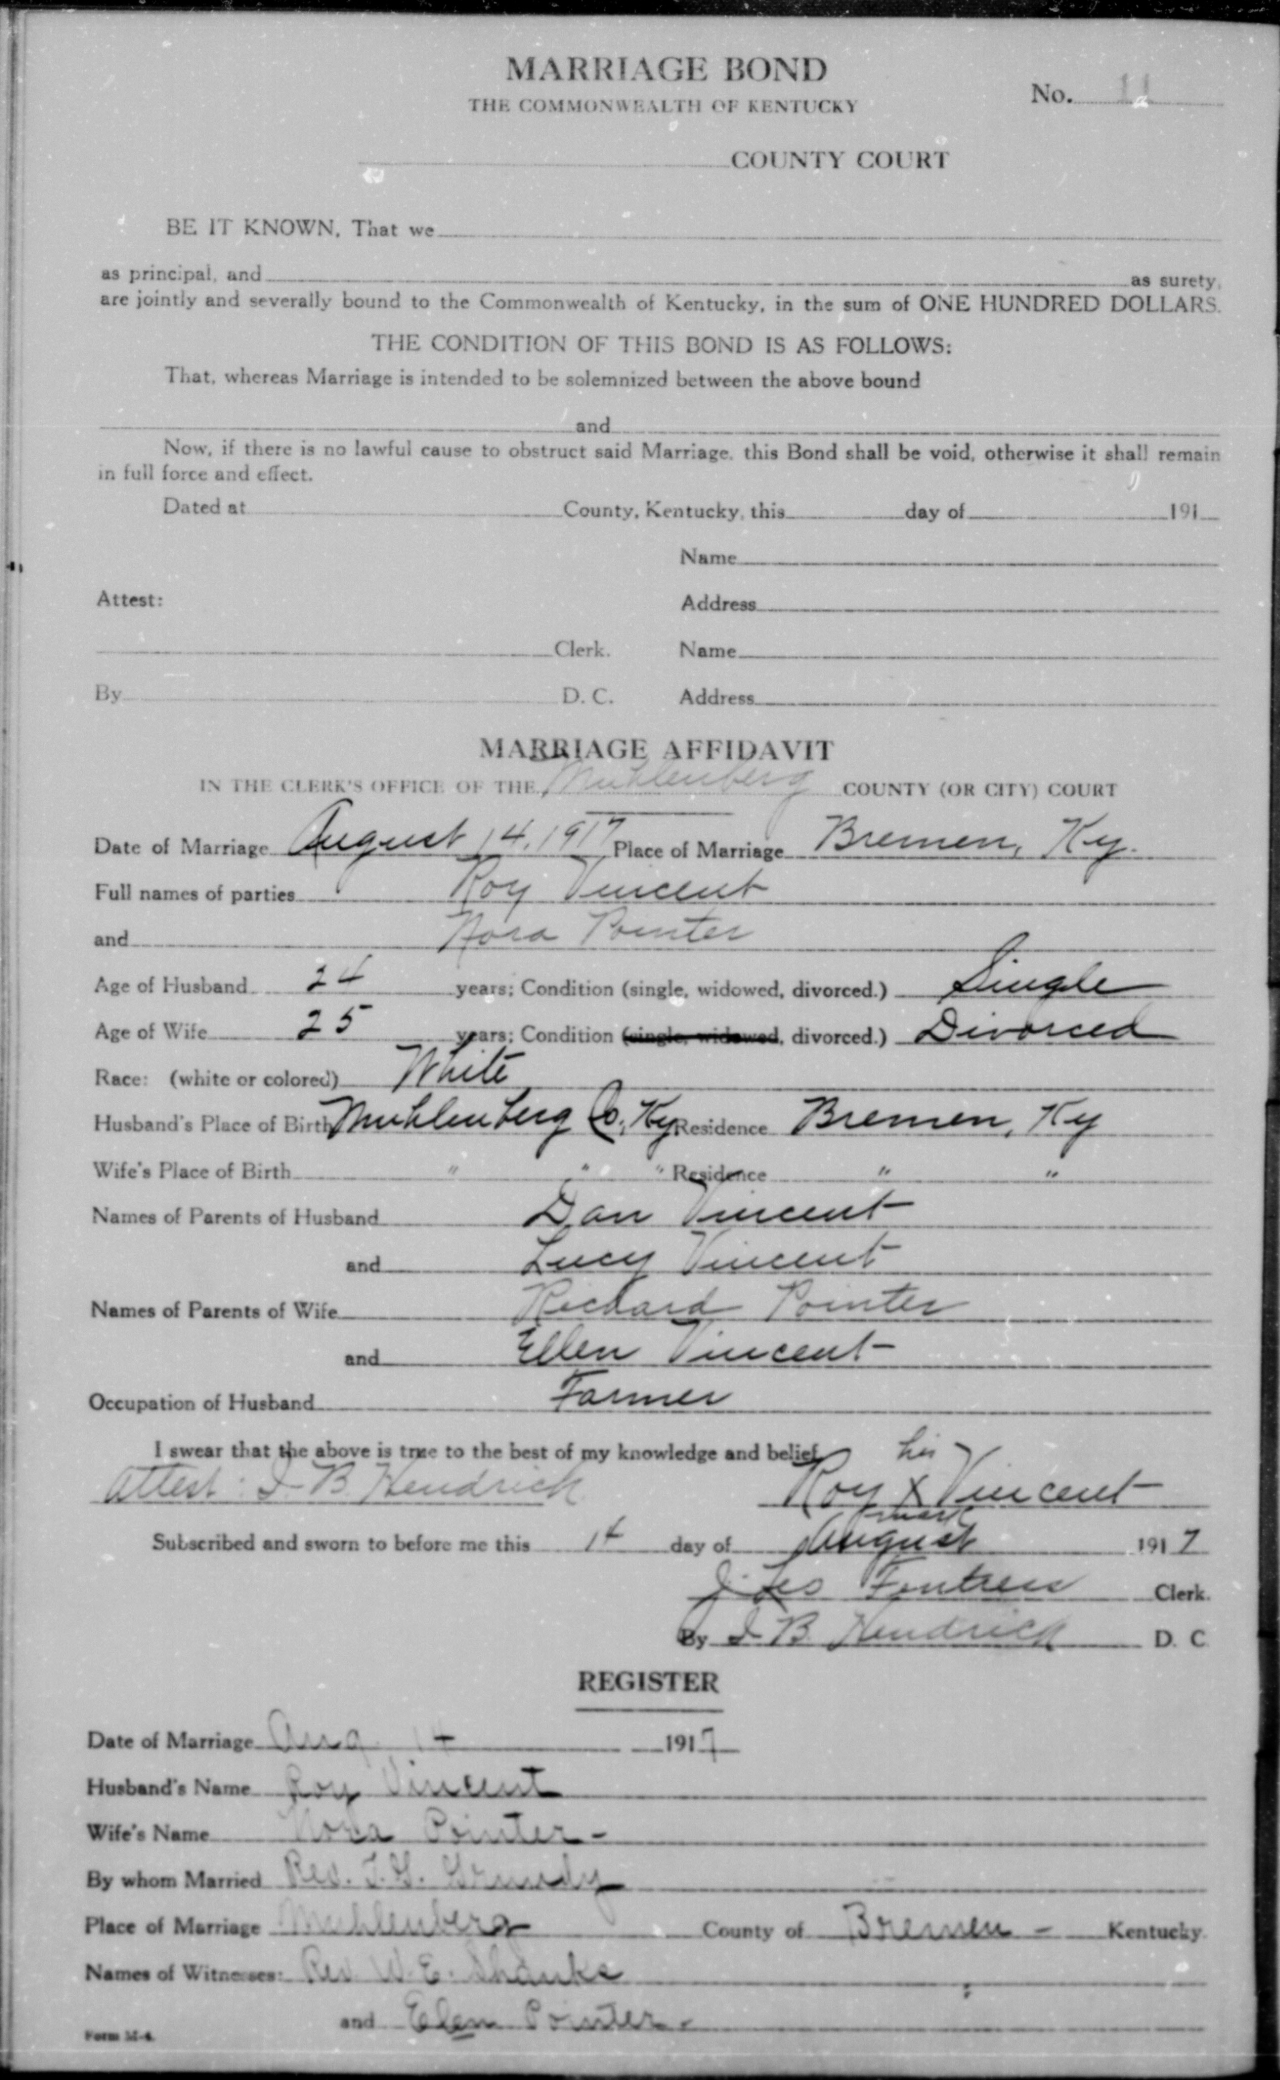 MARRIAGE BOND
THE COMMONWEALTH OF KENTUCKY
No. 11
COUNTY COURT
BE IT KNOWN, That we
as principal, and as surety,
are jointly and severally bound to the Commonwealth of Kentucky, in the sum of ONE HUNDRED DOLLARS.
THE CONDITION OF THIS BOND IS AS FOLLOWS:
That, whereas Marriage is intended to be solemnized between the above bound
and
Now, if there is no lawful cause to obstruct said Marriage, this Bond shall be void, otherwise it shall remain
in full force and effect.
Dated at County, Kentucky, this day of 191
Name
Attest: Address
Clerk. Name
By D. C. Address
MARRIAGE AFFIDAVIT
IN THE CLERK'S OFFICE OF THE Muhlenberg COUNTY (OR CITY) COURT
Date of Marriage August 14, 1917 Place of Marriage Bremen, Ky.
Full names of parties Roy Vincent
and Nora Pointer
Age of Husband 24 years; Condition (single, widowed, divorced.) Single
Age of Wife 25 years; Condition (single, widowed, divorced.) Divorced
Race: (white or colored) White
Husband's Place of Birth Muhlenberg Co, Ky Residence Bremen, Ky
Wife's Place of Birth " " " Residence " "
Names of Parents of Husband Dan Vincent
and Lucy Vincent
Names of Parents of Wife Richard Pointer
and Ellen Vincent
Occupation of Husband Farmer
I swear that the above is true to the best of my knowledge and belief
his
Attest: I. B. Hendrick Roy X Vincent
mark
Subscribed and sworn to before me this 14 day of August 1917
J. Les Fentress Clerk.
By I. B. Hendrick D. C
REGISTER
Date of Marriage Aug 14 1917
Husband's Name Roy Vincent
Wife's Name Nora Pointer -
By whom Married Rev. T. G. Grundy
Place of Marriage Muhlenberg County of Bremen - Kentucky
Names of Witnesses: Rev. W. E. Shanks
and Elen Pointer -
Form M-4.